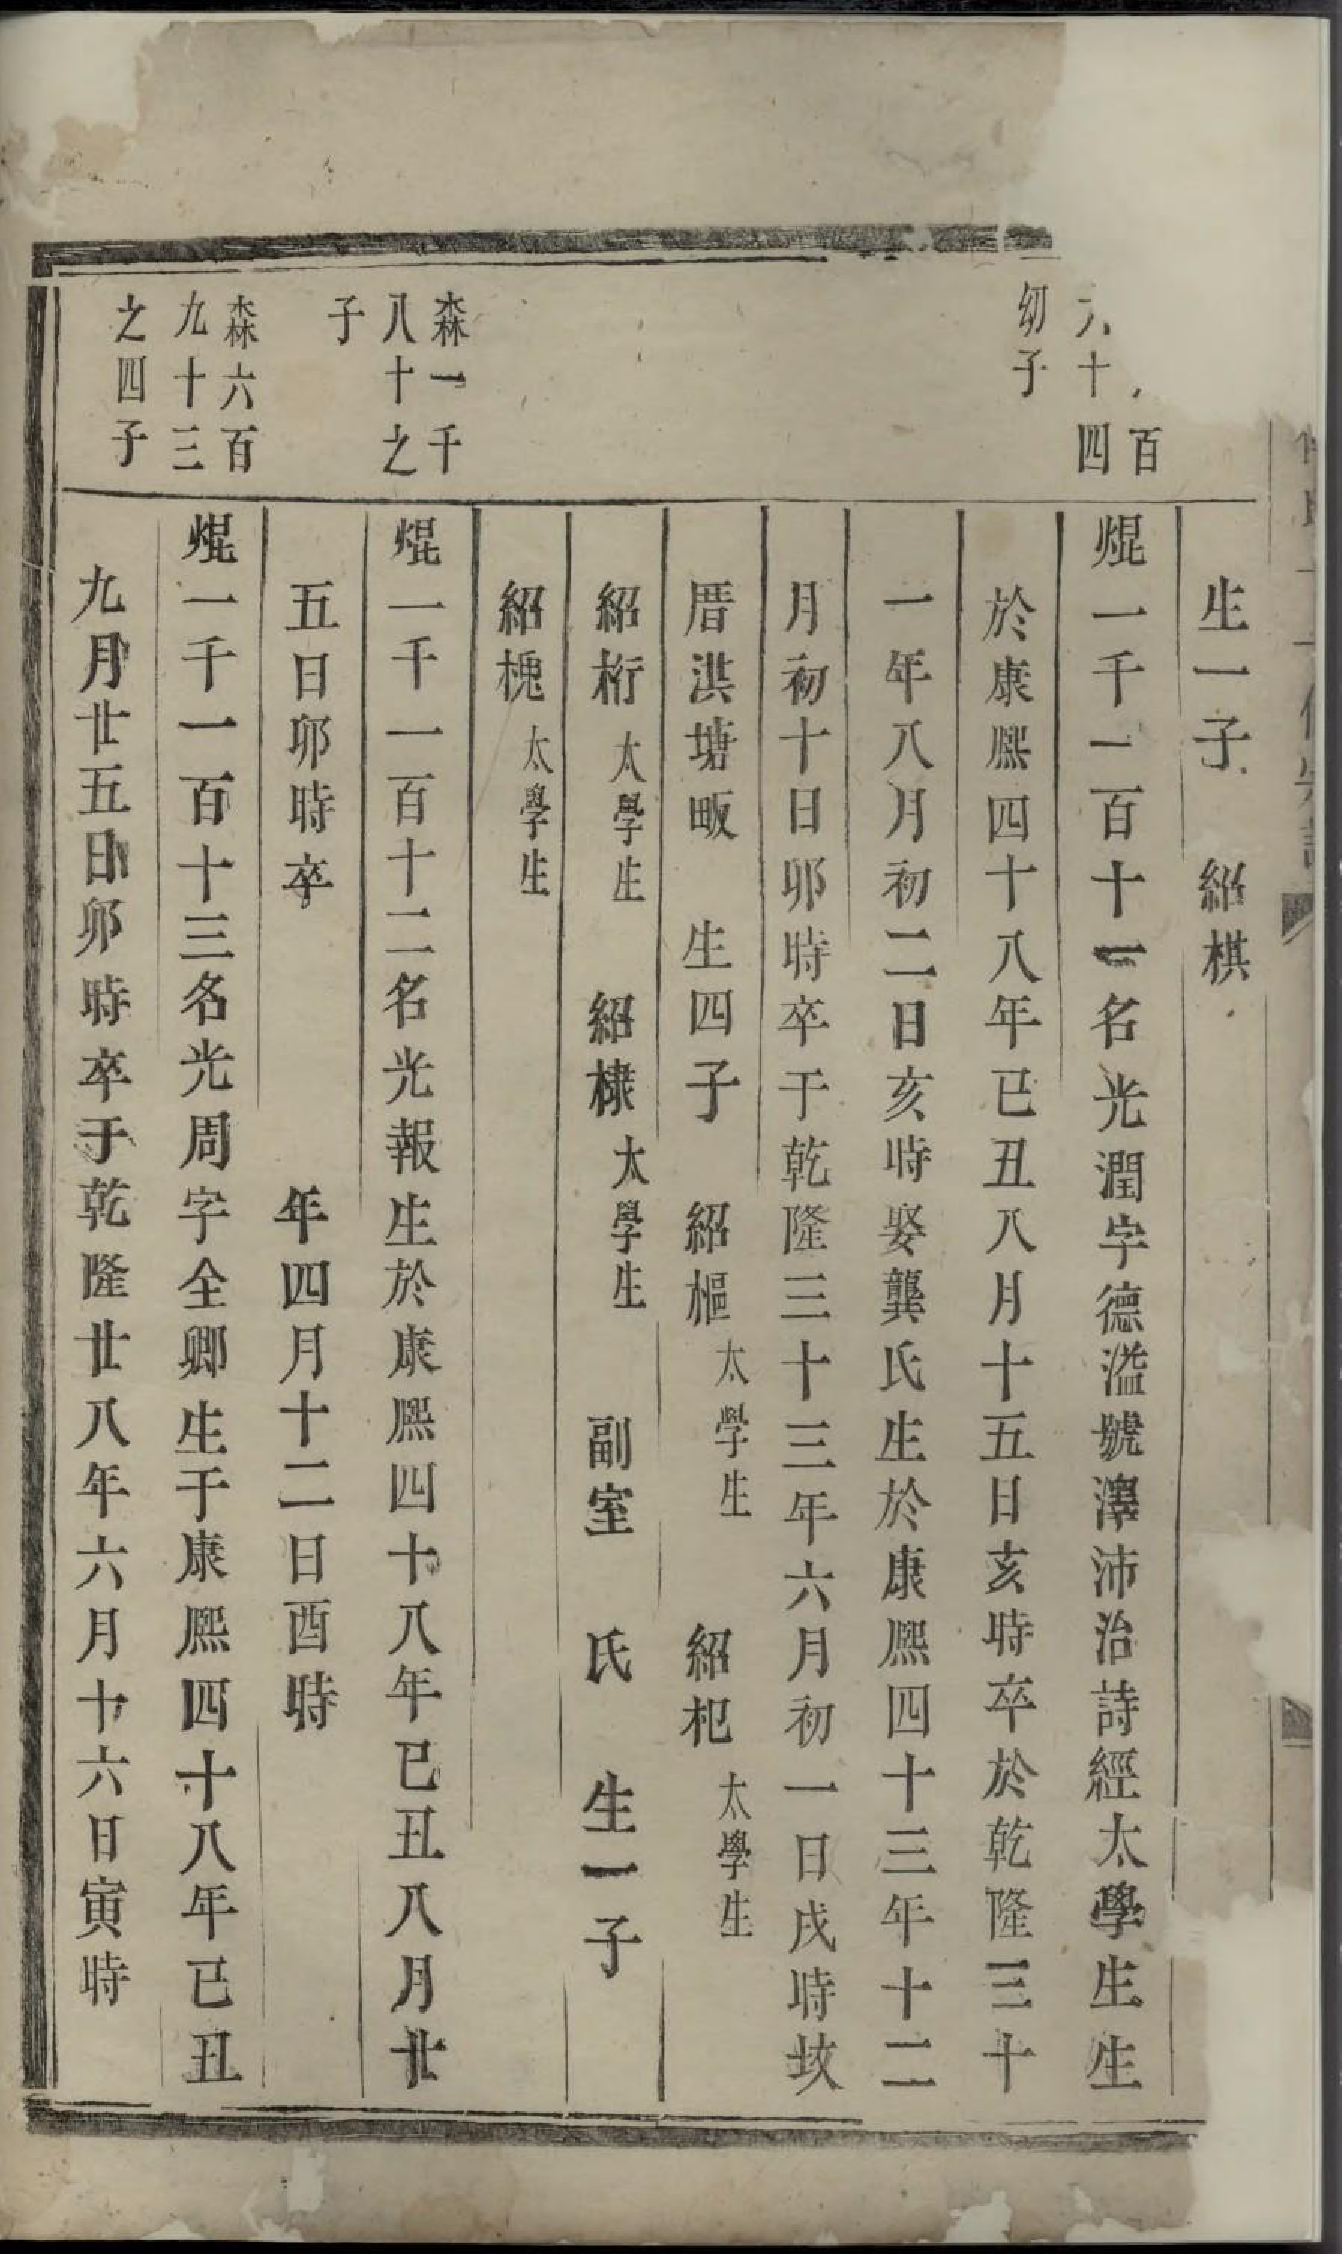 生一子 紹棋
百
六十四
幼子
焜一千一百十一名光潤字德溢號澤沛治詩經太學生生
於康熙四十八年已丑八月十五日亥時卒於乾隆三十
一年八月初二日亥時娶龔氏生於康熙四十三年十二
月初十日卯時卒于乾隆三十三年六月初一日戌時坟
厝洪塘畈 生四子 紹樞太學生 紹杞太學生
紹桁太學生 紹棣太學生 副室 氏 生一子
紹槐太學生
森一千
八十之
子
焜一千一百十二名光報生於康熙四十八年已丑八月廿
五日卯時卒 年四月十二日酉時
森六百
九十三
之四子
焜一千一百十三名光周字全卿生于康熙四十八年已丑
九月廿五日卯時卒于乾隆廿八年六月十六日寅時